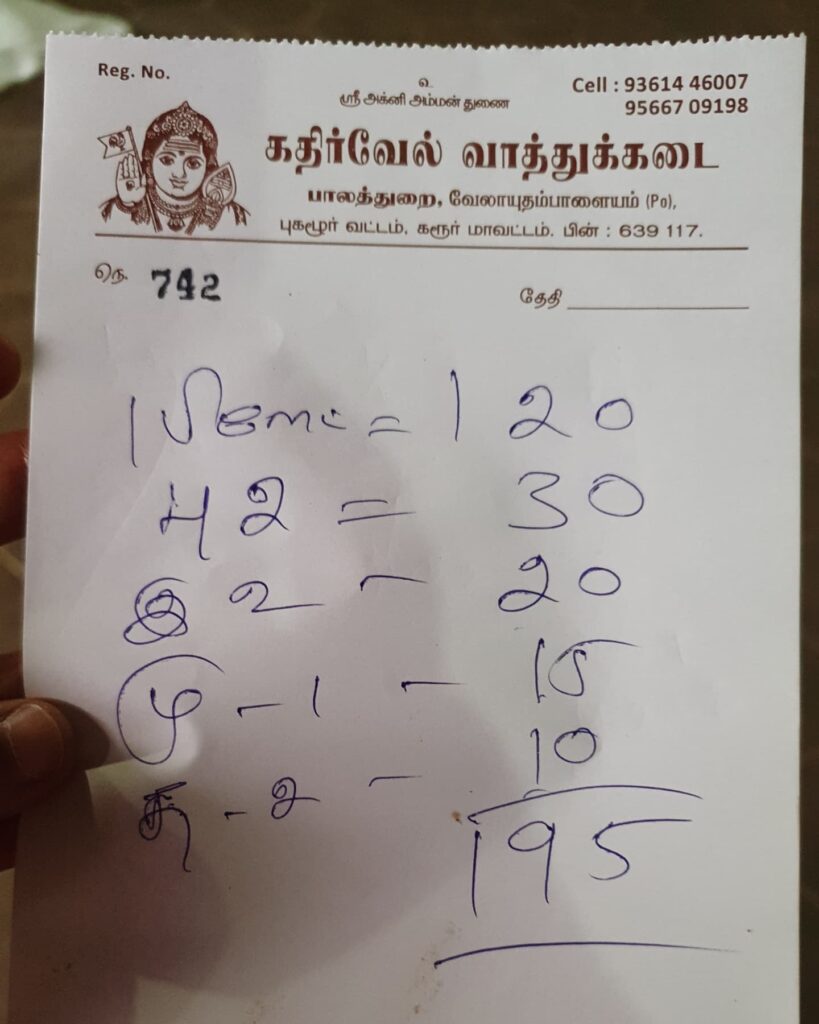 Reg. No.
உ
ஸ்ரீ அக்னி அம்மன் துணை
Cell : 93614 46007
95667 09198
கதிர்வேல் வாத்துக்கடை
பாலத்துறை, வேலாயுதம்பாளையம் (Po),
புகழூர் வட்டம், கரூர் மாவட்டம். பின் : 639 117.
நெ. 742
தேதி
1 = 120
பு 2 = 30
இ 2 - 20
மு - 1 - 15
- 2 - 10
195